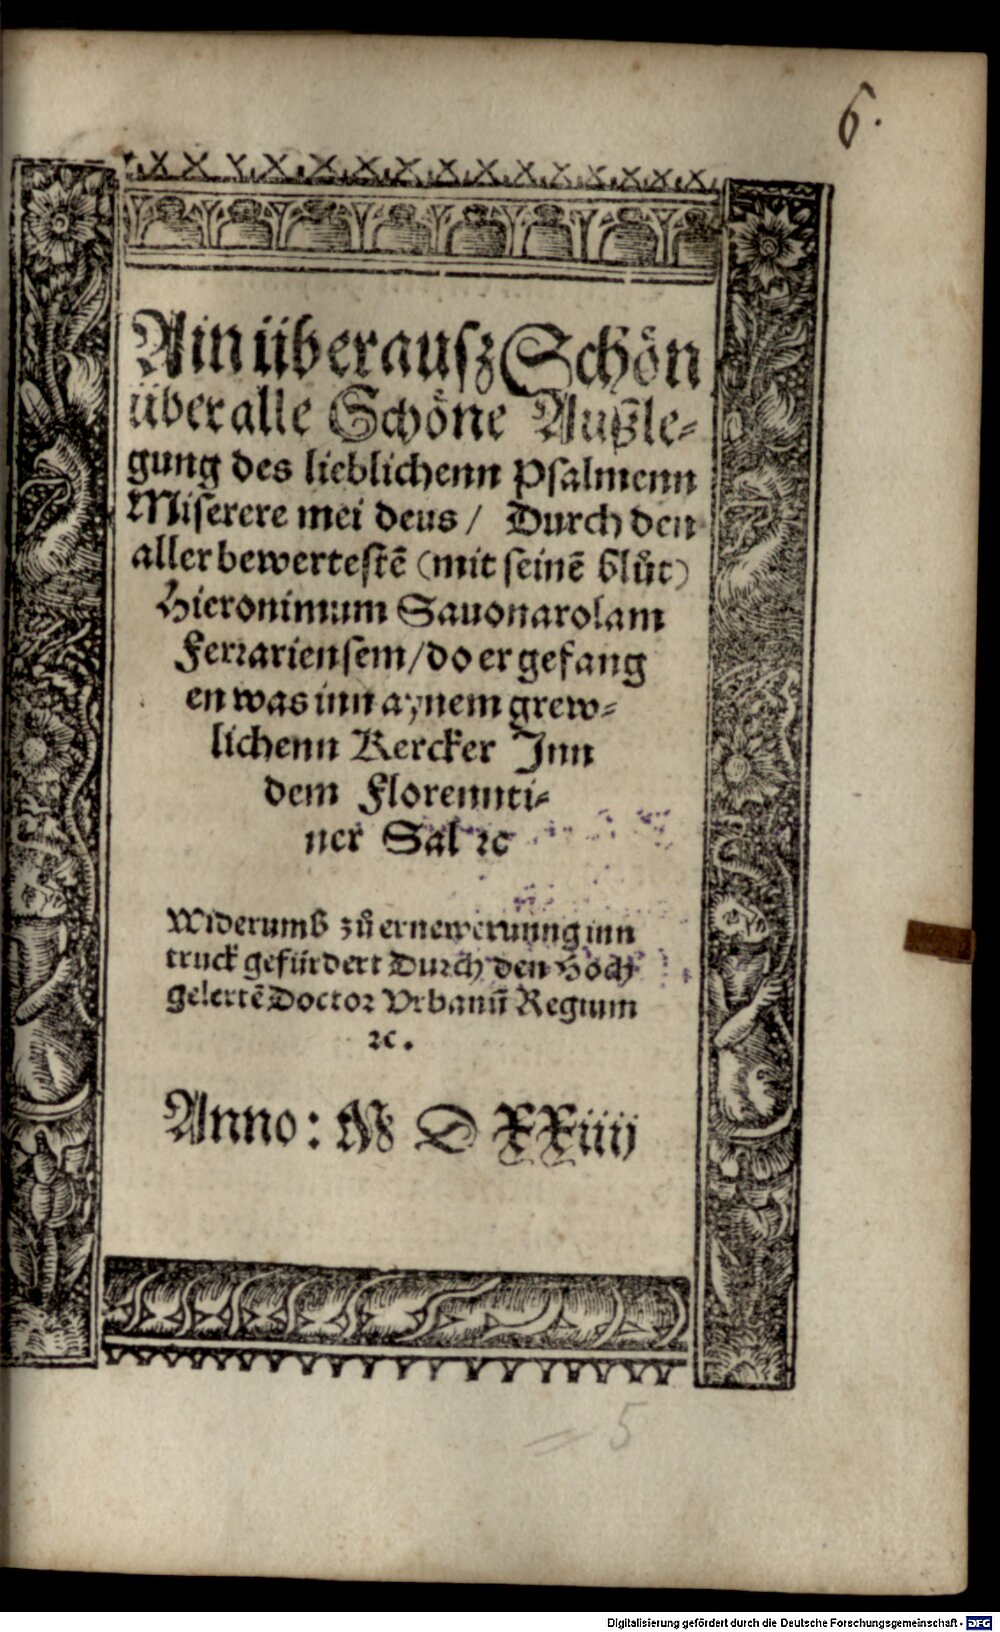 6.
Ain überausz Schön
über alle Schöne Außle⸗
gung des lieblichenn Psalmenn
Miserere mei deus / Durch den
aller bewertestē (mit seinē blůt)
Hieronimum Sauonarolam
Ferrariensem/do er gefang
en was inn aynem grew⸗
lichenn Kercker Inn
dem Florennti⸗
ner Sal ꝛc
Widerumb zů ernewerunng inn
truck gefürdert Durch den Hoch
gelertē Doctor Vrbanū Regium
ꝛc.
Anno: M D XXiiij
= 5
Digitalisierung gefördert durch die Deutsche Forschungsgemeinschaft - DFG